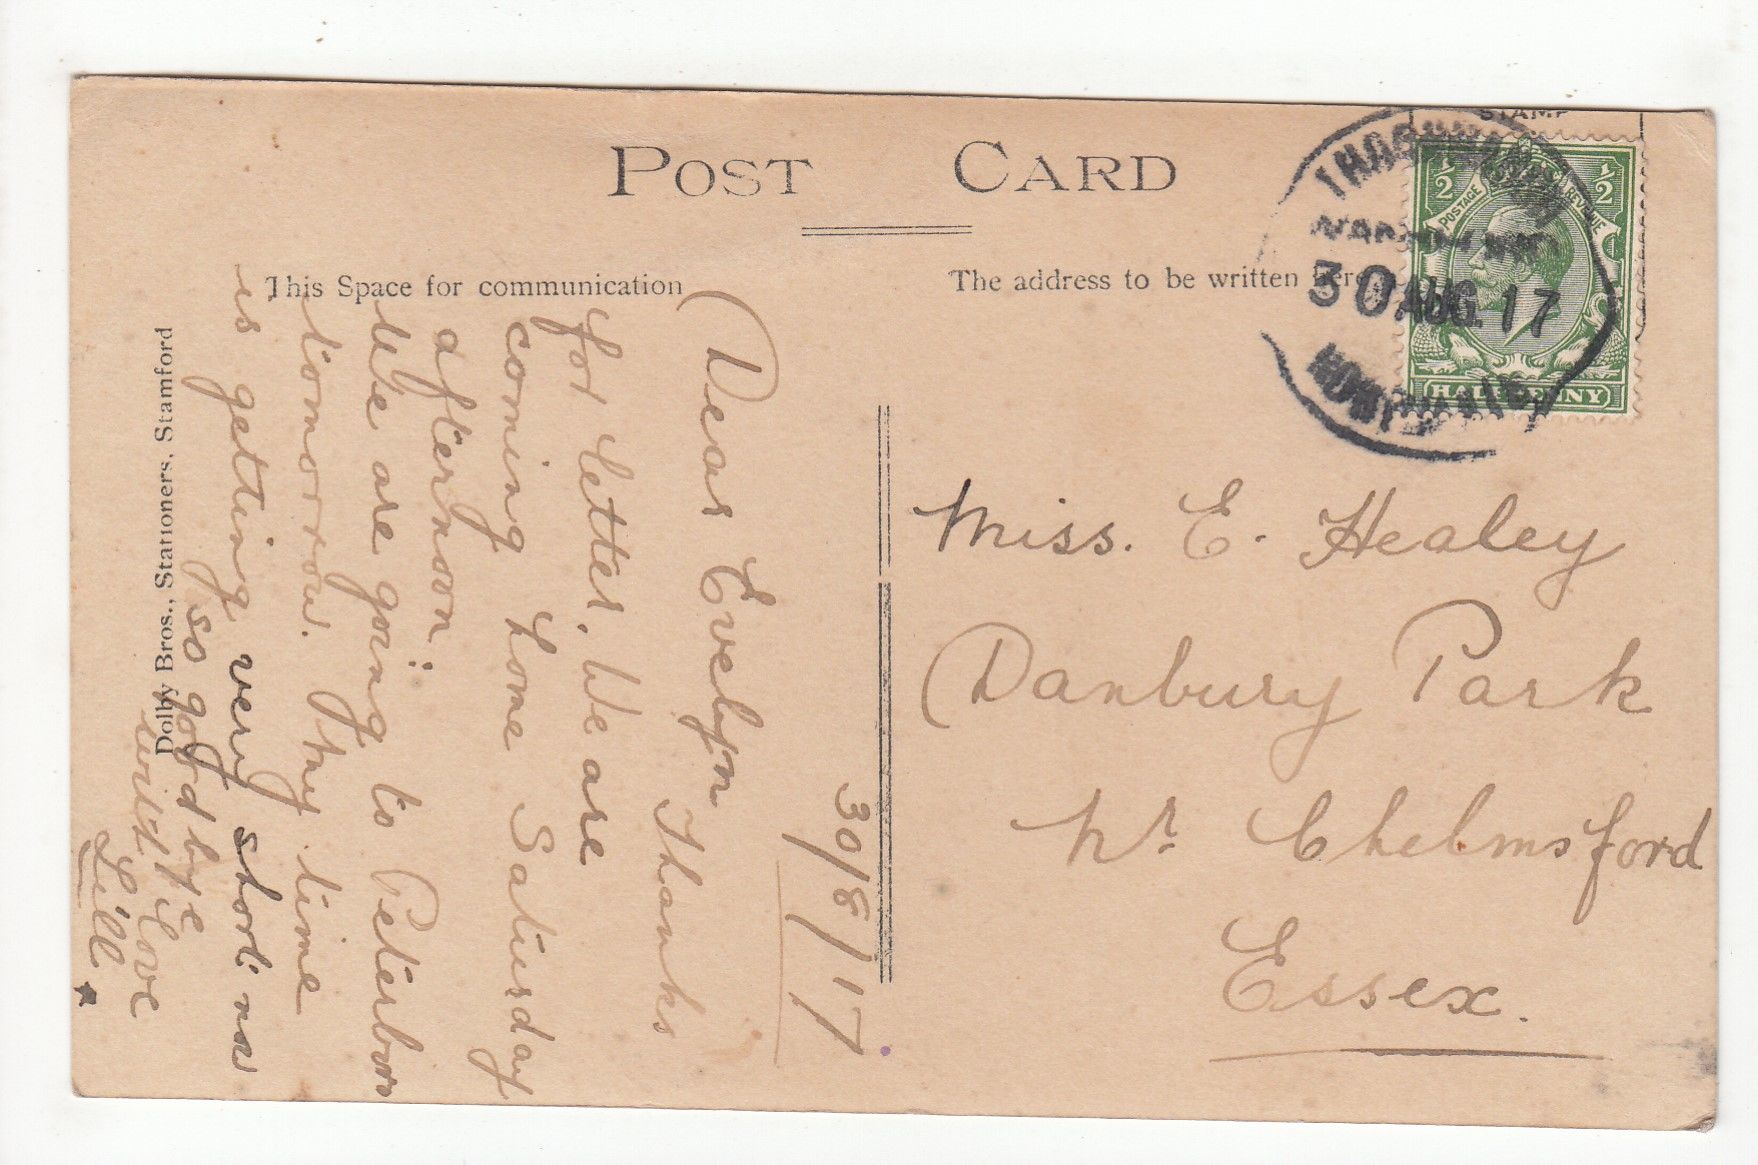 POST CARD
This Space for communication
The address to be written here
STAMP
½ ½
POSTAGE REVENUE
HALFPENNY
30 AUG. 17
Dolby Bros., Stationers, Stamford
30/8/17
Dear Evelyn
Thanks
for letter. We are
coming home Saturday
afternoon:
We are going to Peterboro
tomorrow. My time
is getting very short now
so good bye
with love
Lill.
Miss. E. Healey
Danbury Park
Nr. Chelmsford
Essex.